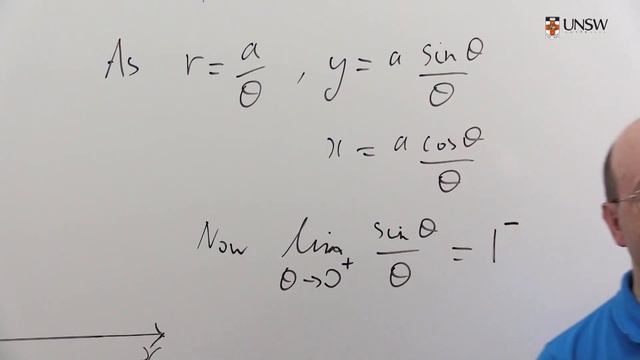 UNSW
As r = a/θ , y = a sinθ/θ
x = a cosθ/θ
Now lim θ→0⁺ sinθ/θ = 1⁻
x